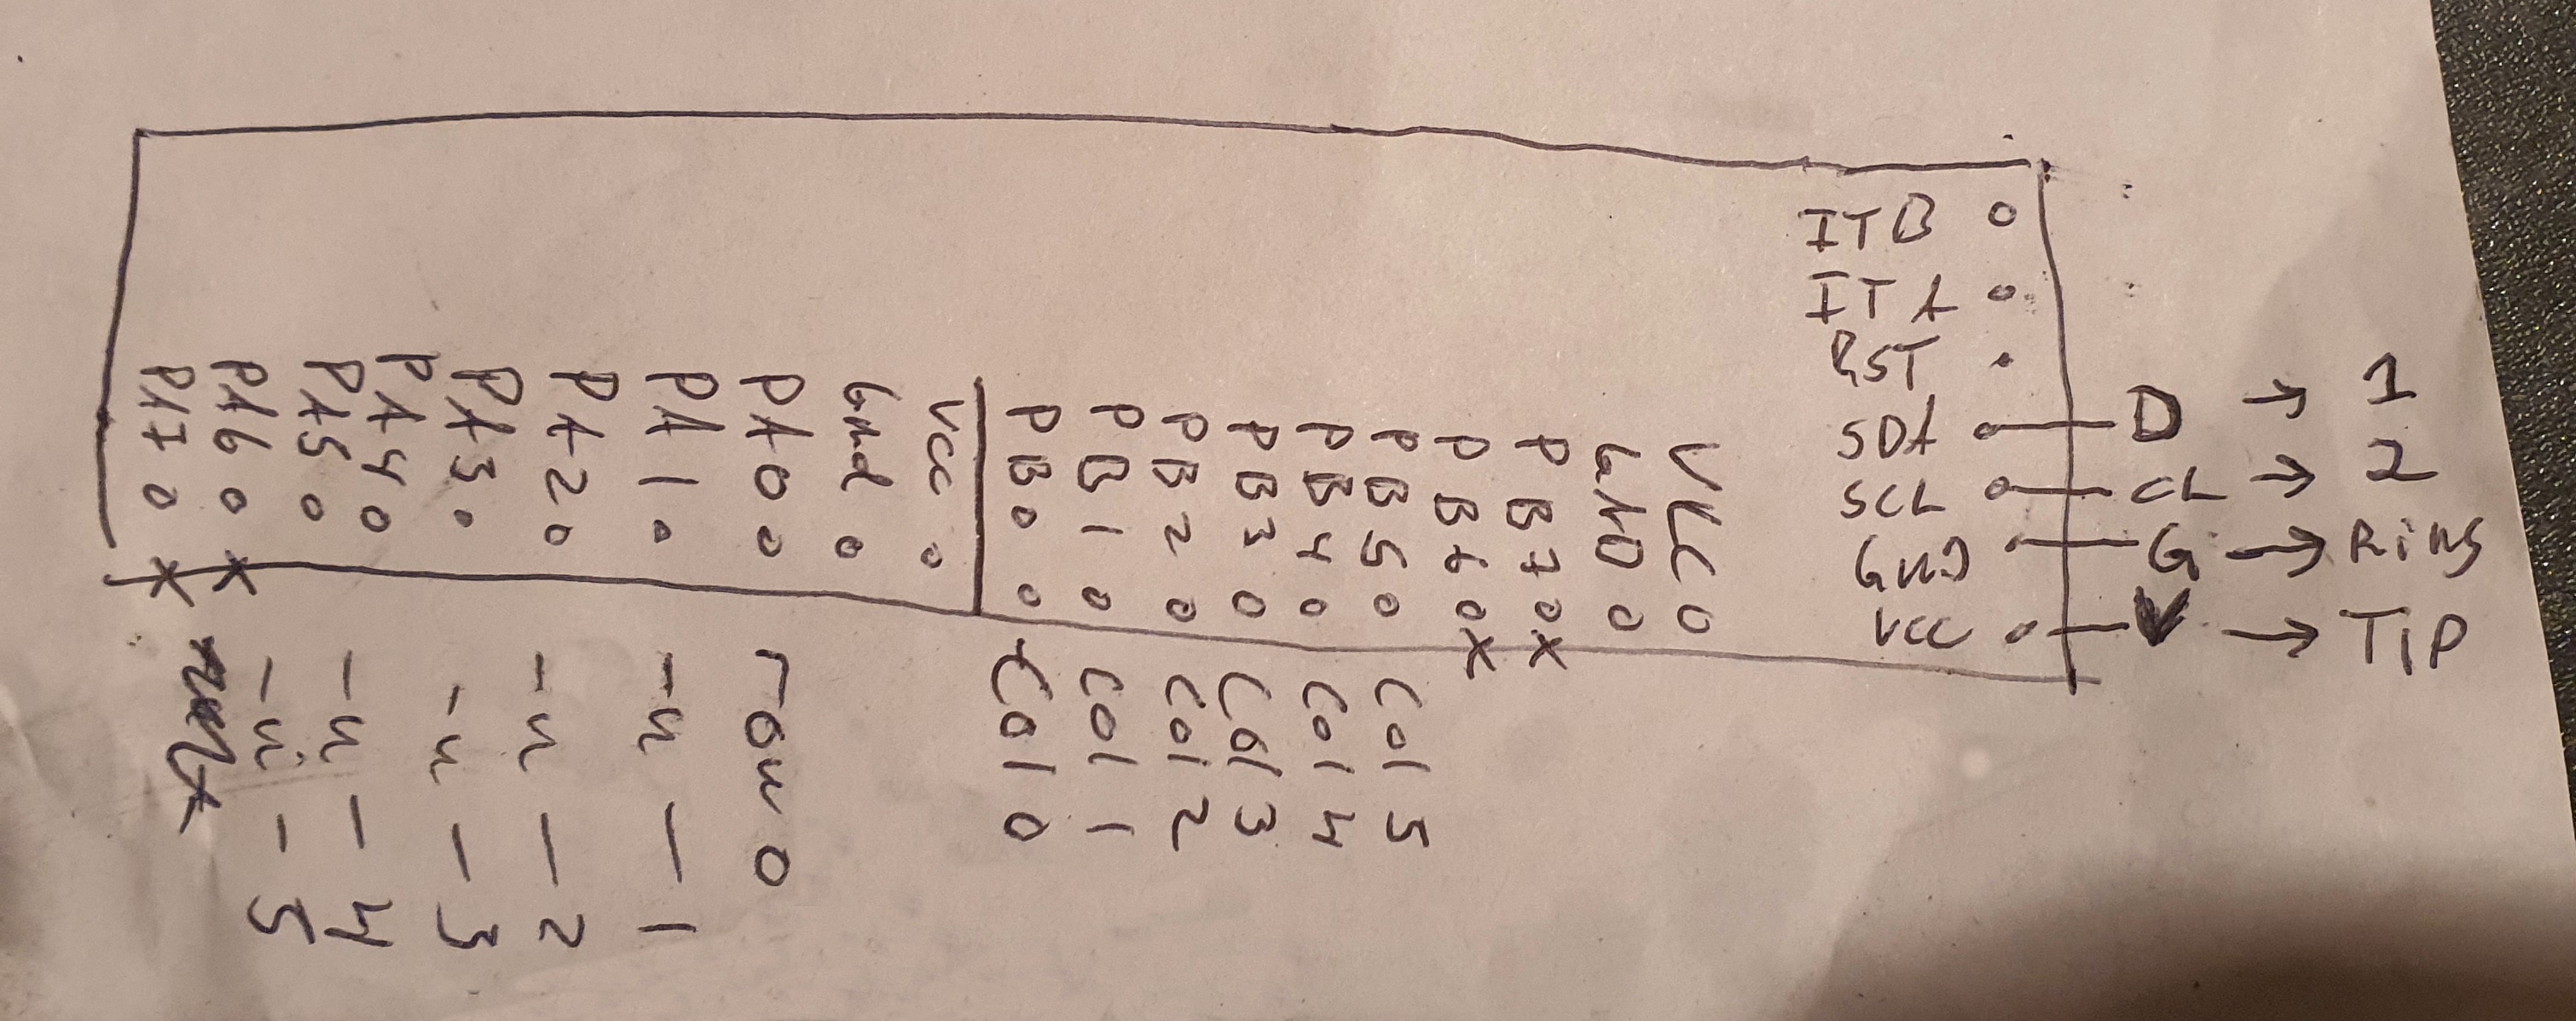 ITB
ITA
RST
SDA D → 1
SCL CL → 2
GND G → Ring
VCC V → TIP
VCC
GND
PB7 X
PB6 X
PB5 Col 5
PB4 Col 4
PB3 Col 3
PB2 Col 2
PB1 Col 1
PB0 Col 0
Vcc
Gnd
PA0 row 0
PA1 -"- 1
PA2 -"- 2
PA3 -"- 3
PA4 -"- 4
PA5 -"- 5
PA6 X
PA7 X